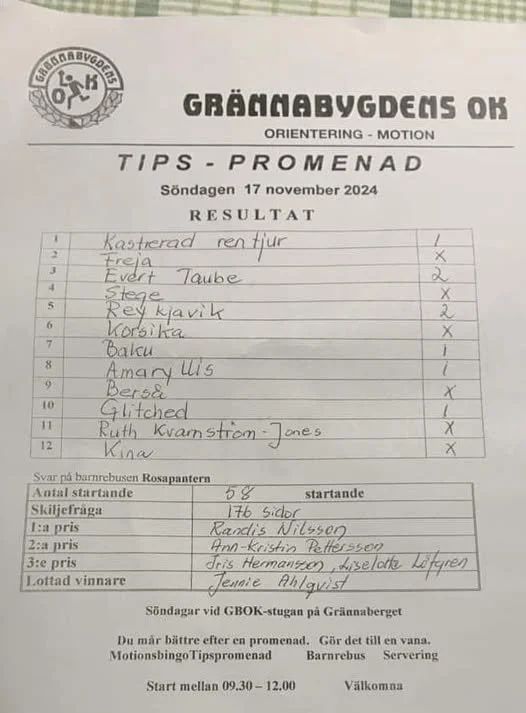 GRÄNNABYGDENS
OK
GRÄNNABYGDENS OK
ORIENTERING - MOTION
TIPS - PROMENAD
Söndagen 17 november 2024
RESULTAT
1 Kastrerad rentjur 1
2 Freja X
3 Evert Taube 2
4 Stege X
5 Reykjavik 2
6 Korsika X
7 Baku 1
8 Amaryllis 1
9 Berså X
10 Glitched 1
11 Ruth Kvarnström-Jones X
12 Kina X
Svar på barnrebusen Rosapantern
Antal startande 58 startande
Skiljefråga 176 sidor
1:a pris Randis Nilsson
2:a pris Ann-Kristin Pettersson
3:e pris Iris Hermansson, Liselotte Löfgren
Lottad vinnare Jennie Ahlqvist
Söndagar vid GBOK-stugan på Grännaberget
Du mår bättre efter en promenad. Gör det till en vana.
MotionsbingoTipspromenad Barnrebus Servering
Start mellan 09.30 – 12.00 Välkomna